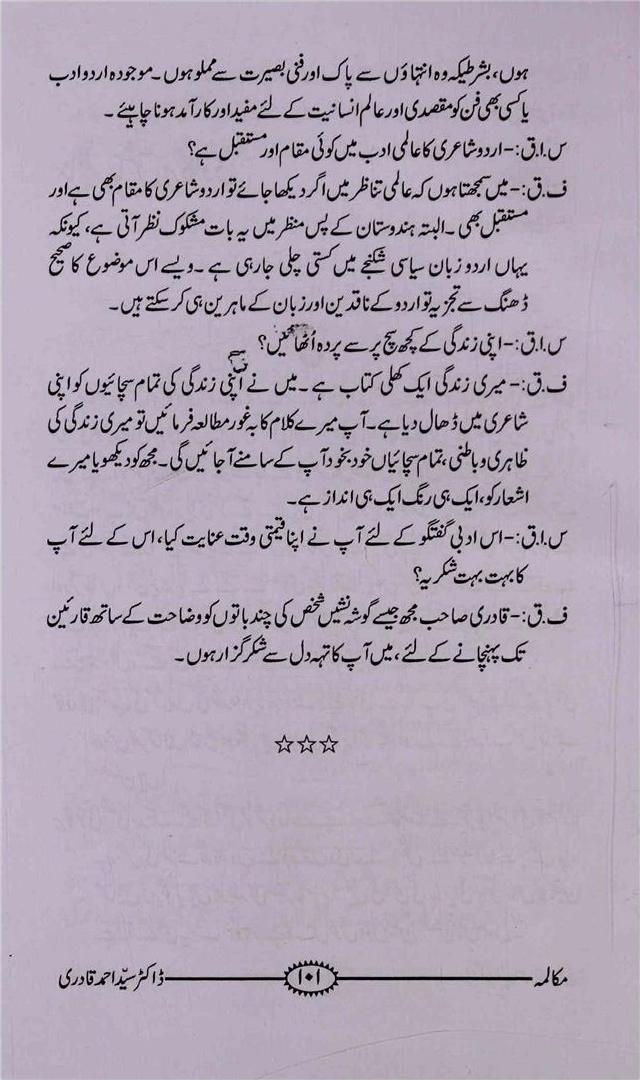 ہوں، بشرطیکہ وہ انتہاؤں سے پاک اور فنی بصیرت سے مملو ہوں۔ موجودہ اردو ادب
یا کسی بھی فن کو مقصدی اور عالم انسانیت کے لئے مفید اور کارآمد ہونا چاہیئے۔
س۔ا۔ق:- اردو شاعری کا عالمی ادب میں کوئی مقام اور مستقبل ہے؟
ف۔ق:- میں سمجھتا ہوں کہ عالمی تناظر میں اگر دیکھا جائے تو اردو شاعری کا مقام بھی ہے اور
مستقبل بھی۔ البتہ ہندوستان کے پس منظر میں یہ بات مشکوک نظر آتی ہے، کیونکہ
یہاں اردو زبان سیاسی شکنجے میں کستی چلی جارہی ہے۔ ویسے اس موضوع کا صحیح
ڈھنگ سے تجزیہ تو اردو کے ناقدین اور زبان کے ماہرین ہی کرسکتے ہیں۔
س۔ا۔ق:- اپنی زندگی کے کچھ سچ پر سے پردہ اُٹھائیں؟
ف۔ق:- میری زندگی ایک کھلی کتاب ہے۔ میں نے اپنی زندگی کی تمام سچائیوں کو اپنی
شاعری میں ڈھال دیا ہے۔ آپ میرے کلام کا بہ غور مطالعہ فرمائیں تو میری زندگی کی
ظاہری و باطنی، تمام سچائیاں خود بخود آپ کے سامنے آجائیں گی۔ مجھ کو دیکھو یا میرے
اشعار کو، ایک ہی رنگ ایک ہی انداز ہے۔
س۔ا۔ق:- اس ادبی گفتگو کے لئے آپ نے اپنا قیمتی وقت عنایت کیا، اس کے لئے آپ
کا بہت بہت شکریہ؟
ف۔ق:- قادری صاحب مجھ جیسے گوشہ نشیں شخص کی چند باتوں کو وضاحت کے ساتھ قارئین
تک پہنچانے کے لئے، میں آپ کا تہہ دل سے شکر گزار ہوں۔
☆☆☆
مکالمہ ۱۰۱ ڈاکٹر سیّد احمد قادری